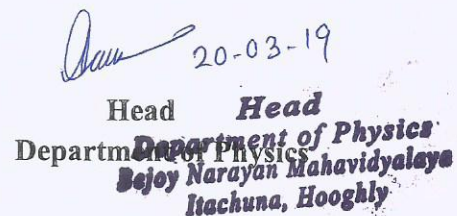 20-03-19
Head Head
Department of Physics
Department of Physics
Bejoy Narayan Mahavidyalaya
Itachuna, Hooghly